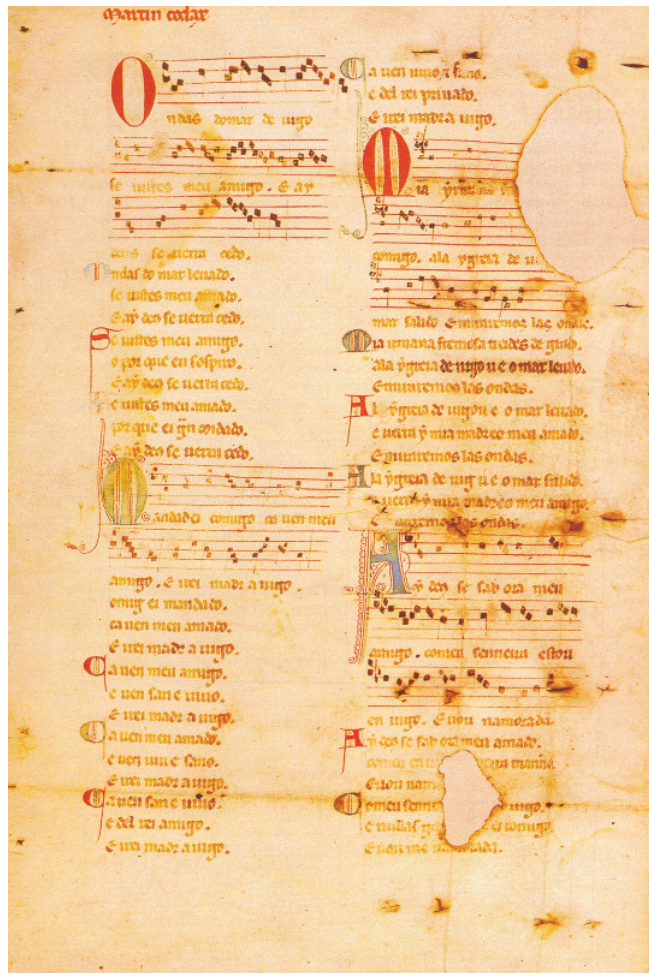 Martin codax
Ondas do mar de uigo
se uistes meu amigo. E ay
deus se uerra cedo.
Ondas do mar leuado.
se uistes meu amado.
E ay deo se uerra cedo.
Se uistes meu amigo
o por que eu sospiro.
E ay deo se uerra cedo.
Se uistes meu amado.
por que ei gñ coidado.
E ay deo se uerra cedo.
Mandad ei comigo ca uen meu
amigo. E irei madr a uigo.
omig ei mandado.
ca uen meu amado.
E irei madr a uigo.
Ca uen meu amigo.
e uen san e uiuo.
E irei madr a uigo.
Ca uen meu amado.
e uen uiu e sano.
E irei madr a uigo.
Ca uen san e uiuo.
e del rei amigo.
E irei madr a uigo.
Ca uen uiuo e sano.
e del rei priuado.
E irei madr a uigo.
Mia yrmana
comigo. ala ygreia de u
mar salido E miraremos las ondas.
Mia irmana fremosa treides de grado.
ala ygreia de uigo u e o mar leuado.
E miraremos las ondas.
Al a ygreia de uigo u e o mar leuado.
e uerra y mia madre o meu amado.
E miraremos las ondas.
Ala ygreia de uig u e o mar salido.
e uerra y mia madre o meu amigo.
E miraremos las ondas.
Ay deo se sab ora meu
amigo. comeu senneira estou
en uigo. E uou namorada
Ay deo se sab ora meu amado.
comeu en senneira manno.
E uou nam
Comeu senne uigo.
e nullas g ei comigo.
E uou me namorada.